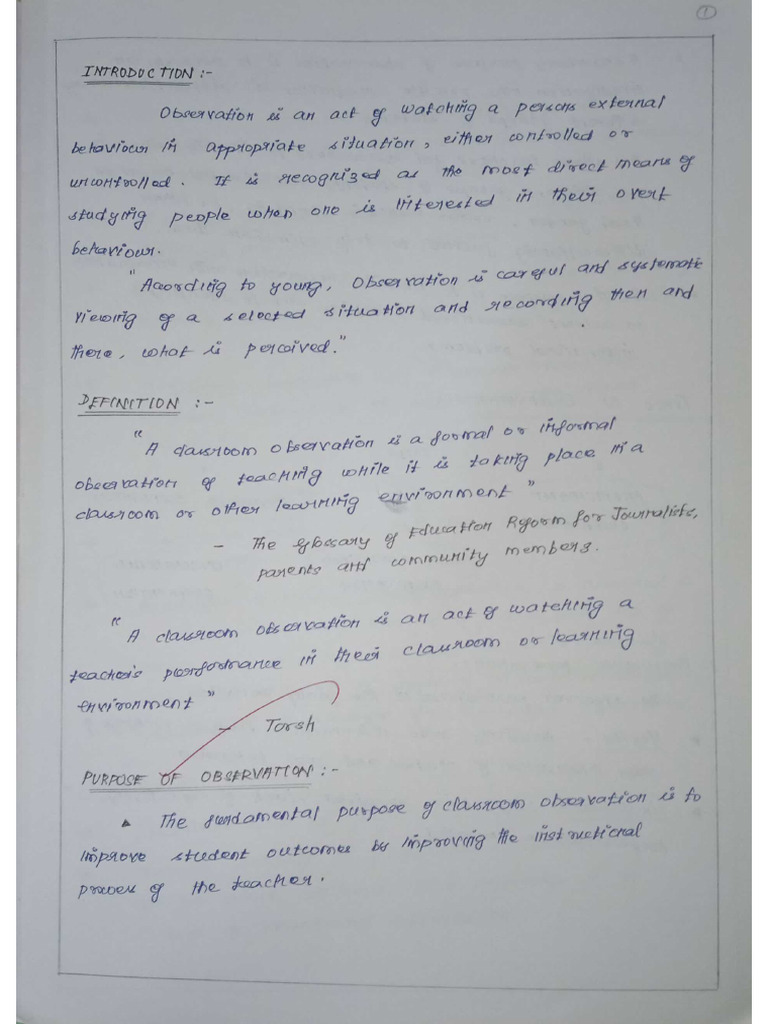 1
INTRODUCTION :-
Observation is an act of watching a persons external
behaviour in appropriate situation, either controlled or
uncontrolled. It is recognized as the most direct means of
studying people when one is interested in their overt
behaviour.
"Acording to young, Observation is careful and systematic
viewing of a selected situation and recording then and
there, what is percived."
DEFINITION :-
" A classroom observation is a formal or informal
observation of teaching while it is taking place in a
classroom or other learning environment "
- The glossary of Education Reform for Journalists,
parents and community members.
" A classroom observation is an act of watching a
teacher's performance in their classroom or learning
environment "
- Torsh
PURPOSE OF OBSERVATION :-
▲ The fundamental purpose of classroom observation is to
improve student outcomes by improving the instructional
process of the teacher.